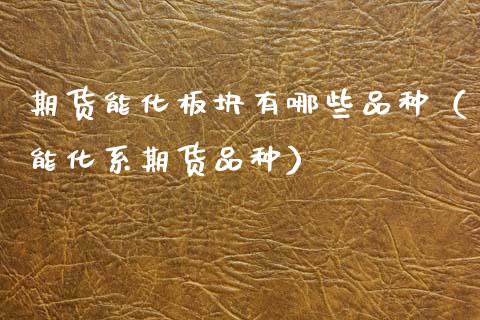 期货能化板块有哪些品种（
能化系期货品种）